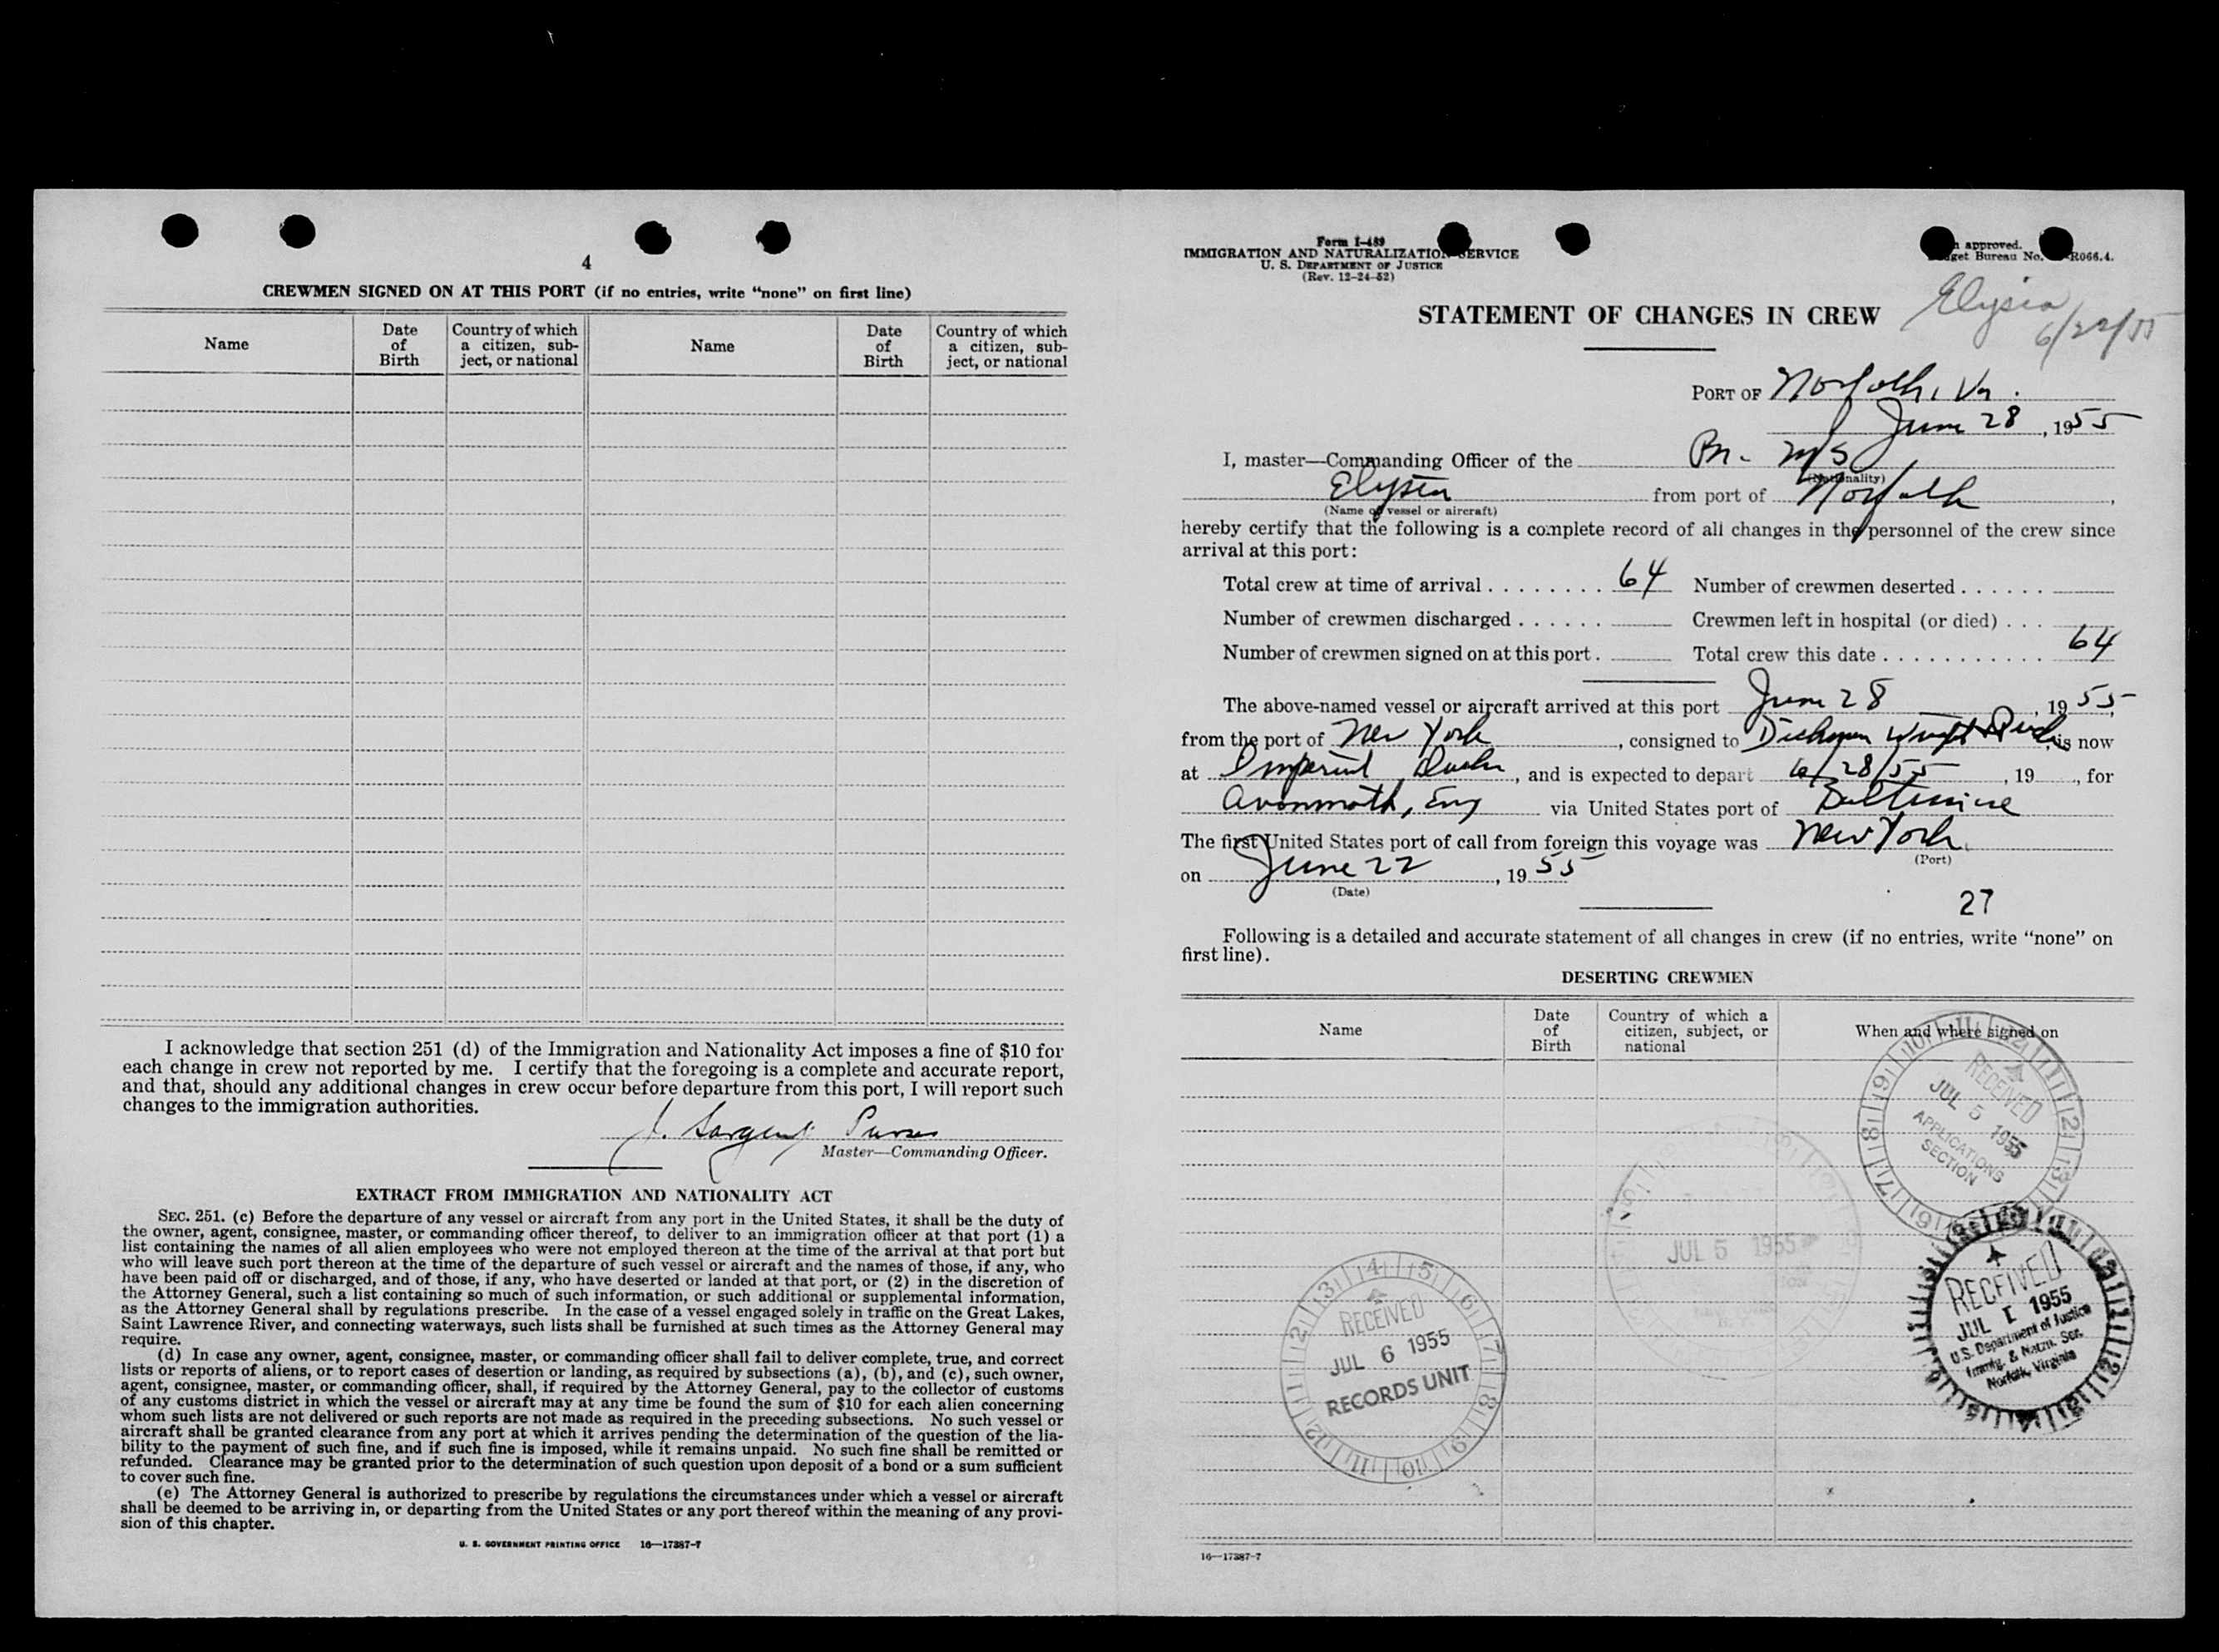 4
CREWMEN SIGNED ON AT THIS PORT (if no entries, write "none" on first line)
Name
Date of Birth
Country of which a citizen, sub-
ject, or national
Name
Date of Birth
Country of which a citizen, sub-
ject, or national
I acknowledge that section 251 (d) of the Immigration and Nationality Act imposes a fine of $10 for
each change in crew not reported by me. I certify that the foregoing is a complete and accurate report,
and that, should any additional changes in crew occur before departure from this port, I will report such
changes to the immigration authorities.
J. Sargent Purser
Master—Commanding Officer.
EXTRACT FROM IMMIGRATION AND NATIONALITY ACT
SEC. 251. (c) Before the departure of any vessel or aircraft from any port in the United States, it shall be the duty of
the owner, agent, consignee, master, or commanding officer thereof, to deliver to an immigration officer at that port (1) a
list containing the names of all alien employees who were not employed thereon at the time of the arrival at that port but
who will leave such port thereon at the time of the departure of such vessel or aircraft and the names of those, if any, who
have been paid off or discharged, and of those, if any, who have deserted or landed at that port, or (2) in the discretion of
the Attorney General, such a list containing so much of such information, or such additional or supplemental information,
as the Attorney General shall by regulations prescribe. In the case of a vessel engaged solely in traffic on the Great Lakes,
Saint Lawrence River, and connecting waterways, such lists shall be furnished at such times as the Attorney General may
require.
(d) In case any owner, agent, consignee, master, or commanding officer shall fail to deliver complete, true, and correct
lists or reports of aliens, or to report cases of desertion or landing, as required by subsections (a), (b), and (c), such owner,
agent, consignee, master, or commanding officer, shall, if required by the Attorney General, pay to the collector of customs
of any customs district in which the vessel or aircraft may at any time be found the sum of $10 for each alien concerning
whom such lists are not delivered or such reports are not made as required in the preceding subsections. No such vessel or
aircraft shall be granted clearance from any port at which it arrives pending the determination of the question of the lia-
bility to the payment of such fine, and if such fine is imposed, while it remains unpaid. No such fine shall be remitted or
refunded. Clearance may be granted prior to the determination of such question upon deposit of a bond or a sum sufficient
to cover such fine.
(e) The Attorney General is authorized to prescribe by regulations the circumstances under which a vessel or aircraft
shall be deemed to be arriving in, or departing from the United States or any port thereof within the meaning of any provi-
sion of this chapter.
U. S. GOVERNMENT PRINTING OFFICE 16—17387-7
Form I-489
IMMIGRATION AND NATURALIZATION SERVICE
U. S. DEPARTMENT OF JUSTICE
(Rev. 12-24-52)
approved.
Bureau No. R066.4.
Elysia
6/22/55
STATEMENT OF CHANGES IN CREW
PORT OF Norfolk, Va.
June 28, 1955
I, master—Commanding Officer of the Br. M/S
(Nationality)
Elysia from port of Norfolk,
(Name of vessel or aircraft)
hereby certify that the following is a complete record of all changes in the personnel of the crew since
arrival at this port:
Total crew at time of arrival . . . . . . . . 64 Number of crewmen deserted . . . . . .
Number of crewmen discharged . . . . . . Crewmen left in hospital (or died) . . .
Number of crewmen signed on at this port . Total crew this date . . . . . . . . . . . 64
The above-named vessel or aircraft arrived at this port June 28, 1955,
from the port of New York, consigned to Dichmann Wright & Pugh, is now
at Imperial Docks, and is expected to depart 6/28/55, 19 , for
Avonmoth, Eng via United States port of Baltimore
The first United States port of call from foreign this voyage was New York
(Port)
on June 22, 1955
(Date)
27
Following is a detailed and accurate statement of all changes in crew (if no entries, write "none" on
first line).
DESERTING CREWMEN
Name
Date of Birth
Country of which a citizen, subject, or national
When and where signed on
RECEIVED
JUL 5 1955
APPLICATIONS
SECTION
JUL 5 1955
RECEIVED
JUL 1955
U.S. Department of Justice
Immig. & Natzn. Ser.
Norfolk, Virginia
RECEIVED
JUL 6 1955
RECORDS UNIT
16—17387-7